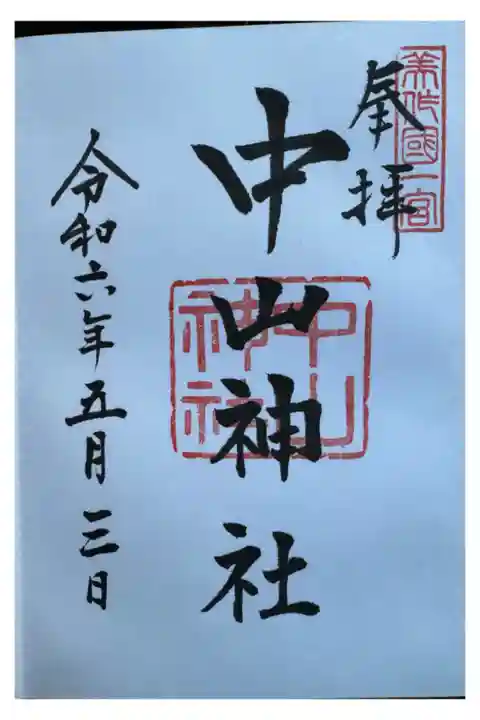 美作國一宮
奉拝
中山神社
中山神社
令和六年五月三日